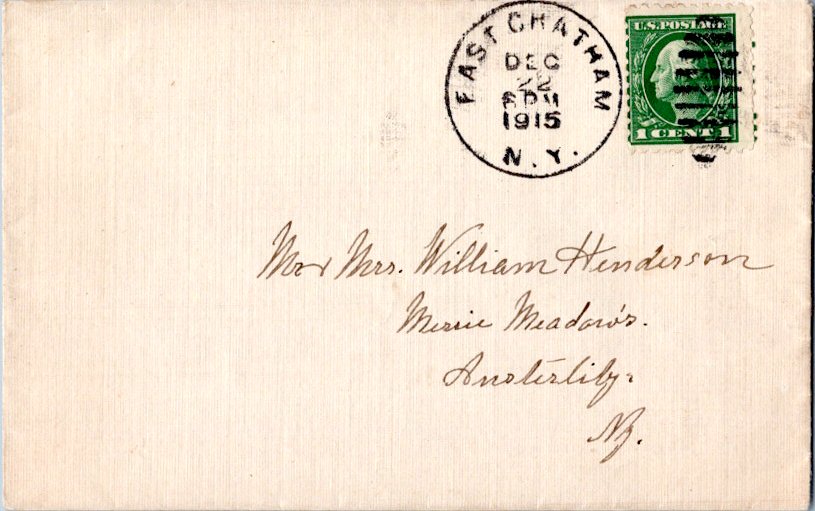 EAST CHATHAM
DEC
22
6 PM
1915
N.Y.
U.S. POSTAGE
1 CENT 1
Mr & Mrs. William Henderson
Merrie Meadows.
Austerlitz.
N.Y.